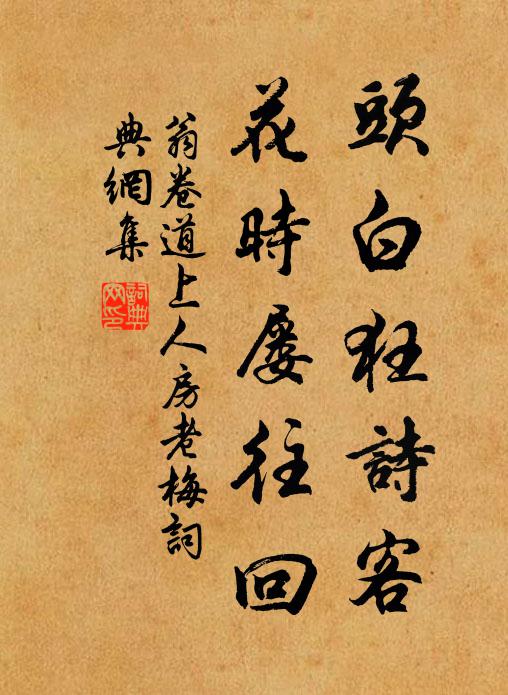 頭白狂詩客
花時屡往回
翁卷道上人房老梅詞
典網集
詞典網印